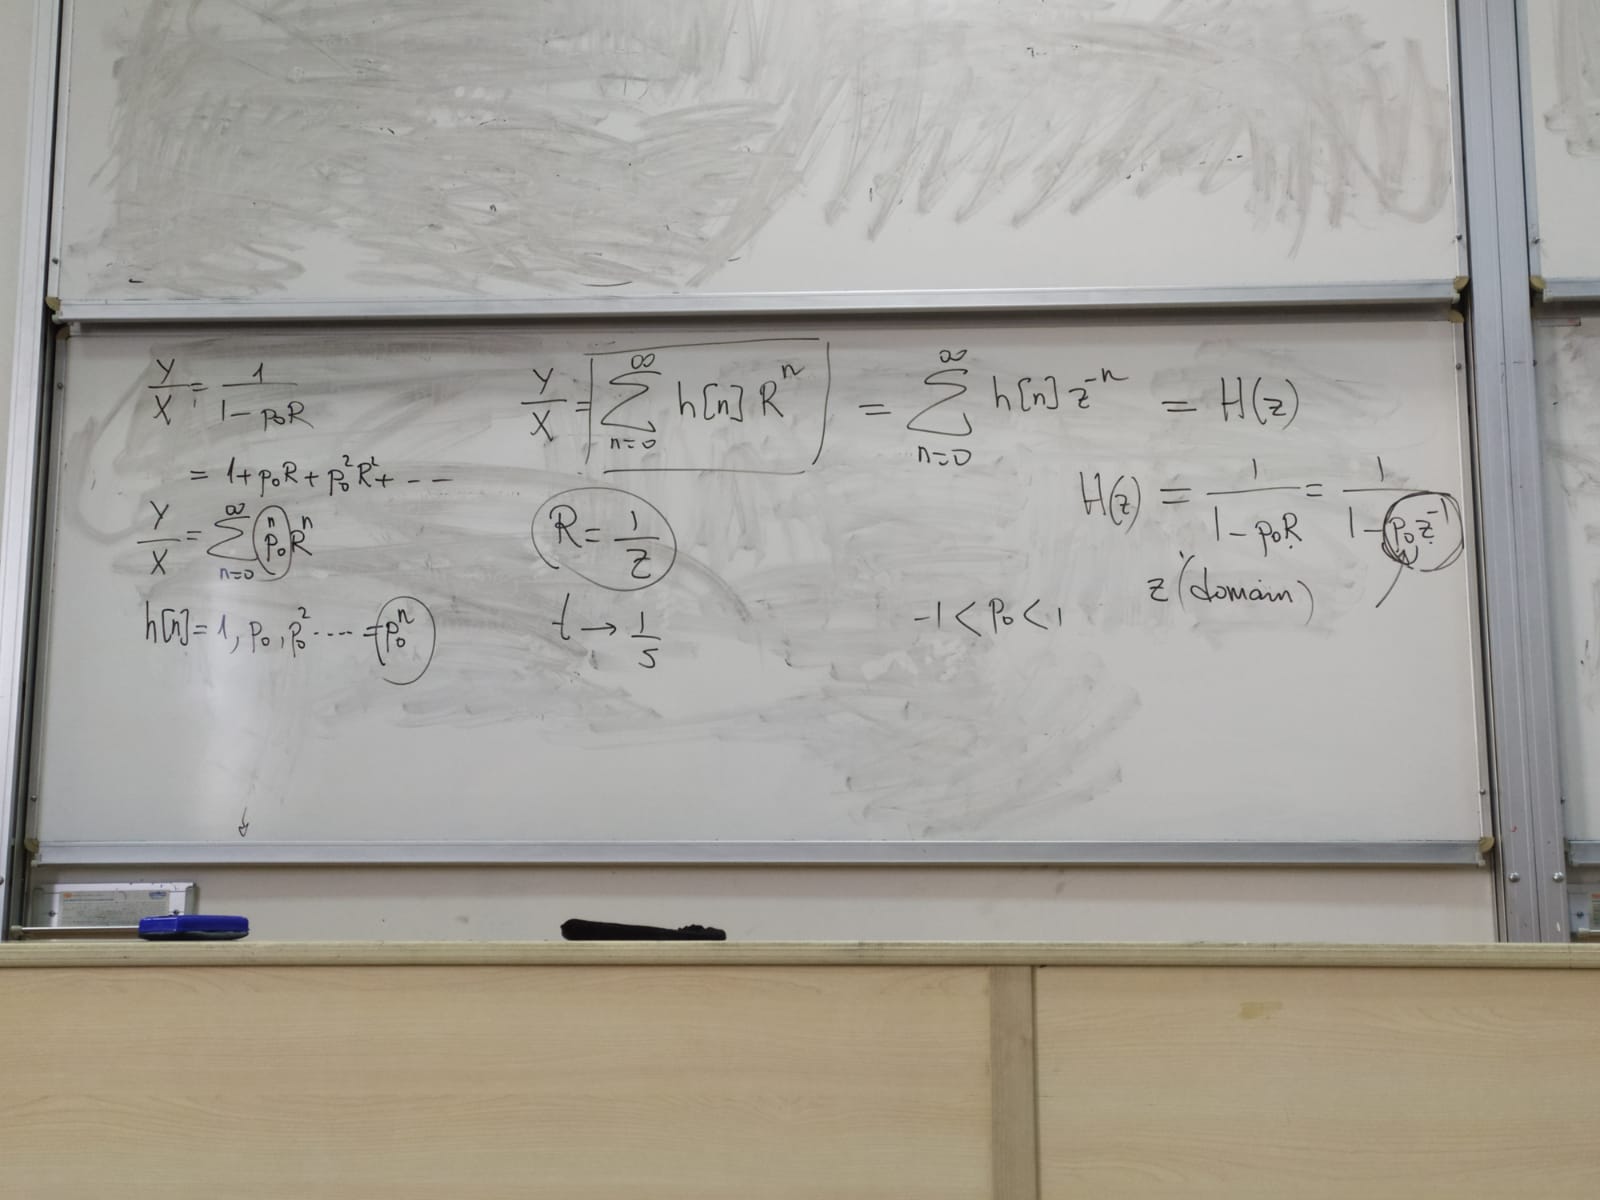 Y/X = 1/(1 - p₀R)
= 1 + p₀R + p₀²R² + ---
Y/X = ∑_{n=0}^{∞} p₀ⁿ Rⁿ
h[n] = 1, p₀, p₀² ..... = p₀ⁿ
Y/X = ∑_{n=0}^{∞} h[n] Rⁿ = ∑_{n=0}^{∞} h[n] z⁻ⁿ = H(z)
R = 1/z
t → 1/s
H(z) = 1/(1 - p₀R) = 1/(1 - p₀z⁻¹)
z (domain)
-1 < p₀ < 1